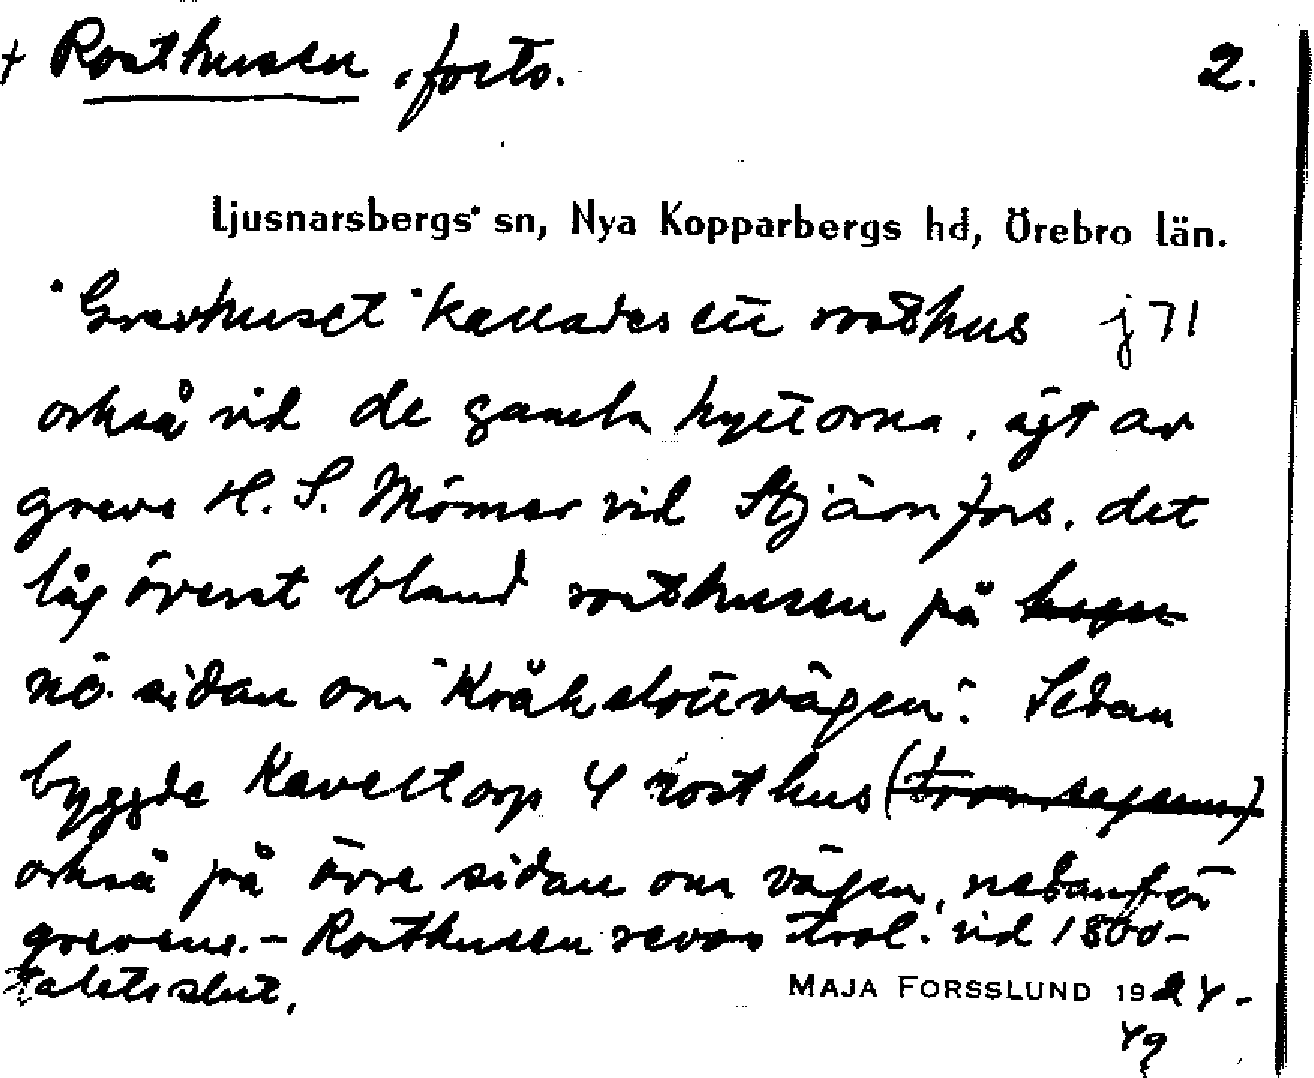 + Rosthusen, forts. 2.
Ljusnarsbergs sn, Nya Kopparbergs hd, Örebro län.
"Grevhuset" kallades ett rosthus j 71
också vid de gamla hyttorna, ägt av
greve H. S. Mörner vid Stjärnfors, det
låg överst bland rosthusen på
nö. sidan om "Kråkslottvägen". Sedan
byggde Kaveltorp 4 rosthus
också på övre sidan om vägen, nedanför
grevens. - Rosthusen revos trol. vid 1800-
talets slut.
MAJA FORSSLUND 1924-
49